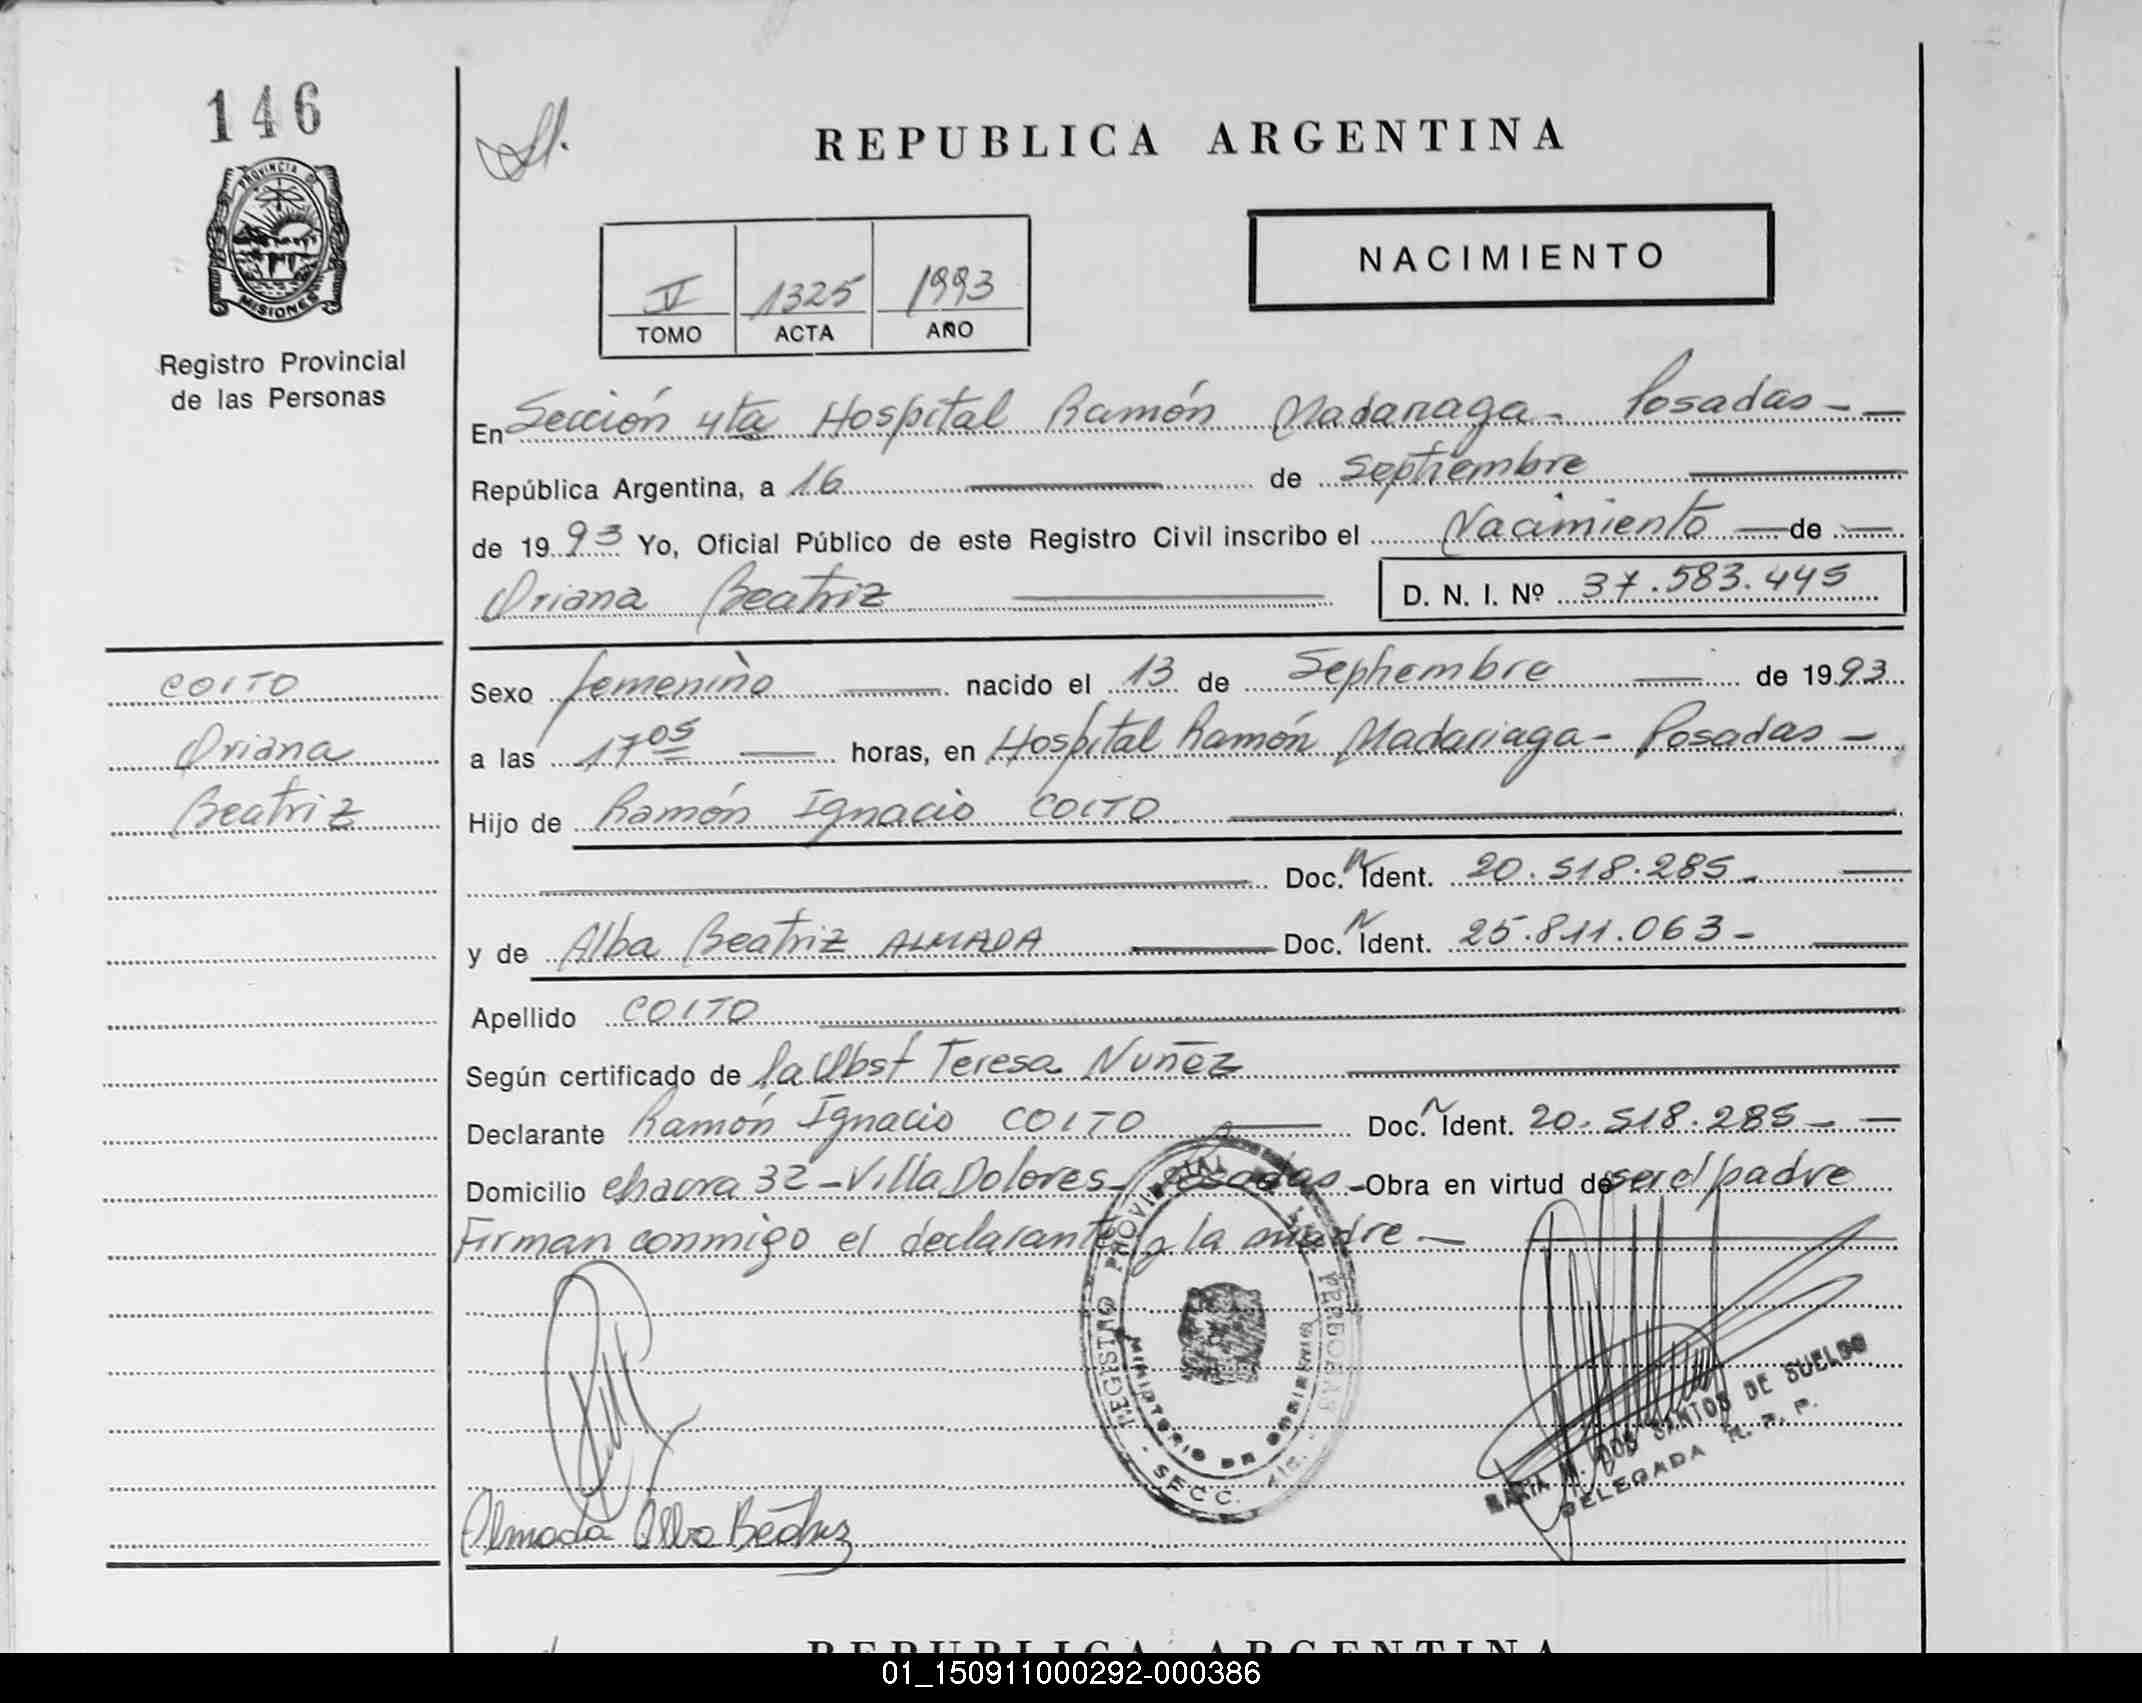 146
PROVINCIA DE
MISIONES
Registro Provincial
de las Personas
REPUBLICA ARGENTINA
NACIMIENTO
V 1325 1993
TOMO ACTA AÑO
En Sección 4ta Hospital Ramón Madariaga - Posadas - -
República Argentina, a 16 de Septiembre
de 1993 Yo, Oficial Público de este Registro Civil inscribo el Nacimiento de
Oriana Beatriz D. N. I. Nº 37.583.445
COITO
Oriana
Beatriz
Sexo femenino nacido el 13 de Septiembre de 1993
a las 17 05 horas, en Hospital Ramón Madariaga - Posadas -
Hijo de Ramón Ignacio COITO
Doc. N Ident. 20.518.285 -
y de Alba Beatriz ALMADA Doc. N Ident. 25.811.063 -
Apellido COITO
Según certificado de la Obst Teresa Nuñez
Declarante Ramón Ignacio COITO Doc. N Ident. 20.518.285 -
Domicilio chacra 32 - Villa Dolores - Posadas - Obra en virtud de ser el padre
Firman conmigo el declarante y la madre -
REGISTRO PROVINCIAL LAS PERSONAS
MINISTERIO DE GOBIERNO
SECC.
MARIA M. DOS SANTOS DE SUELDO
DELEGADA R. P. P.
Almada Alba Beatriz
REPUBLICA ARGENTINA
01_150911000292-000386